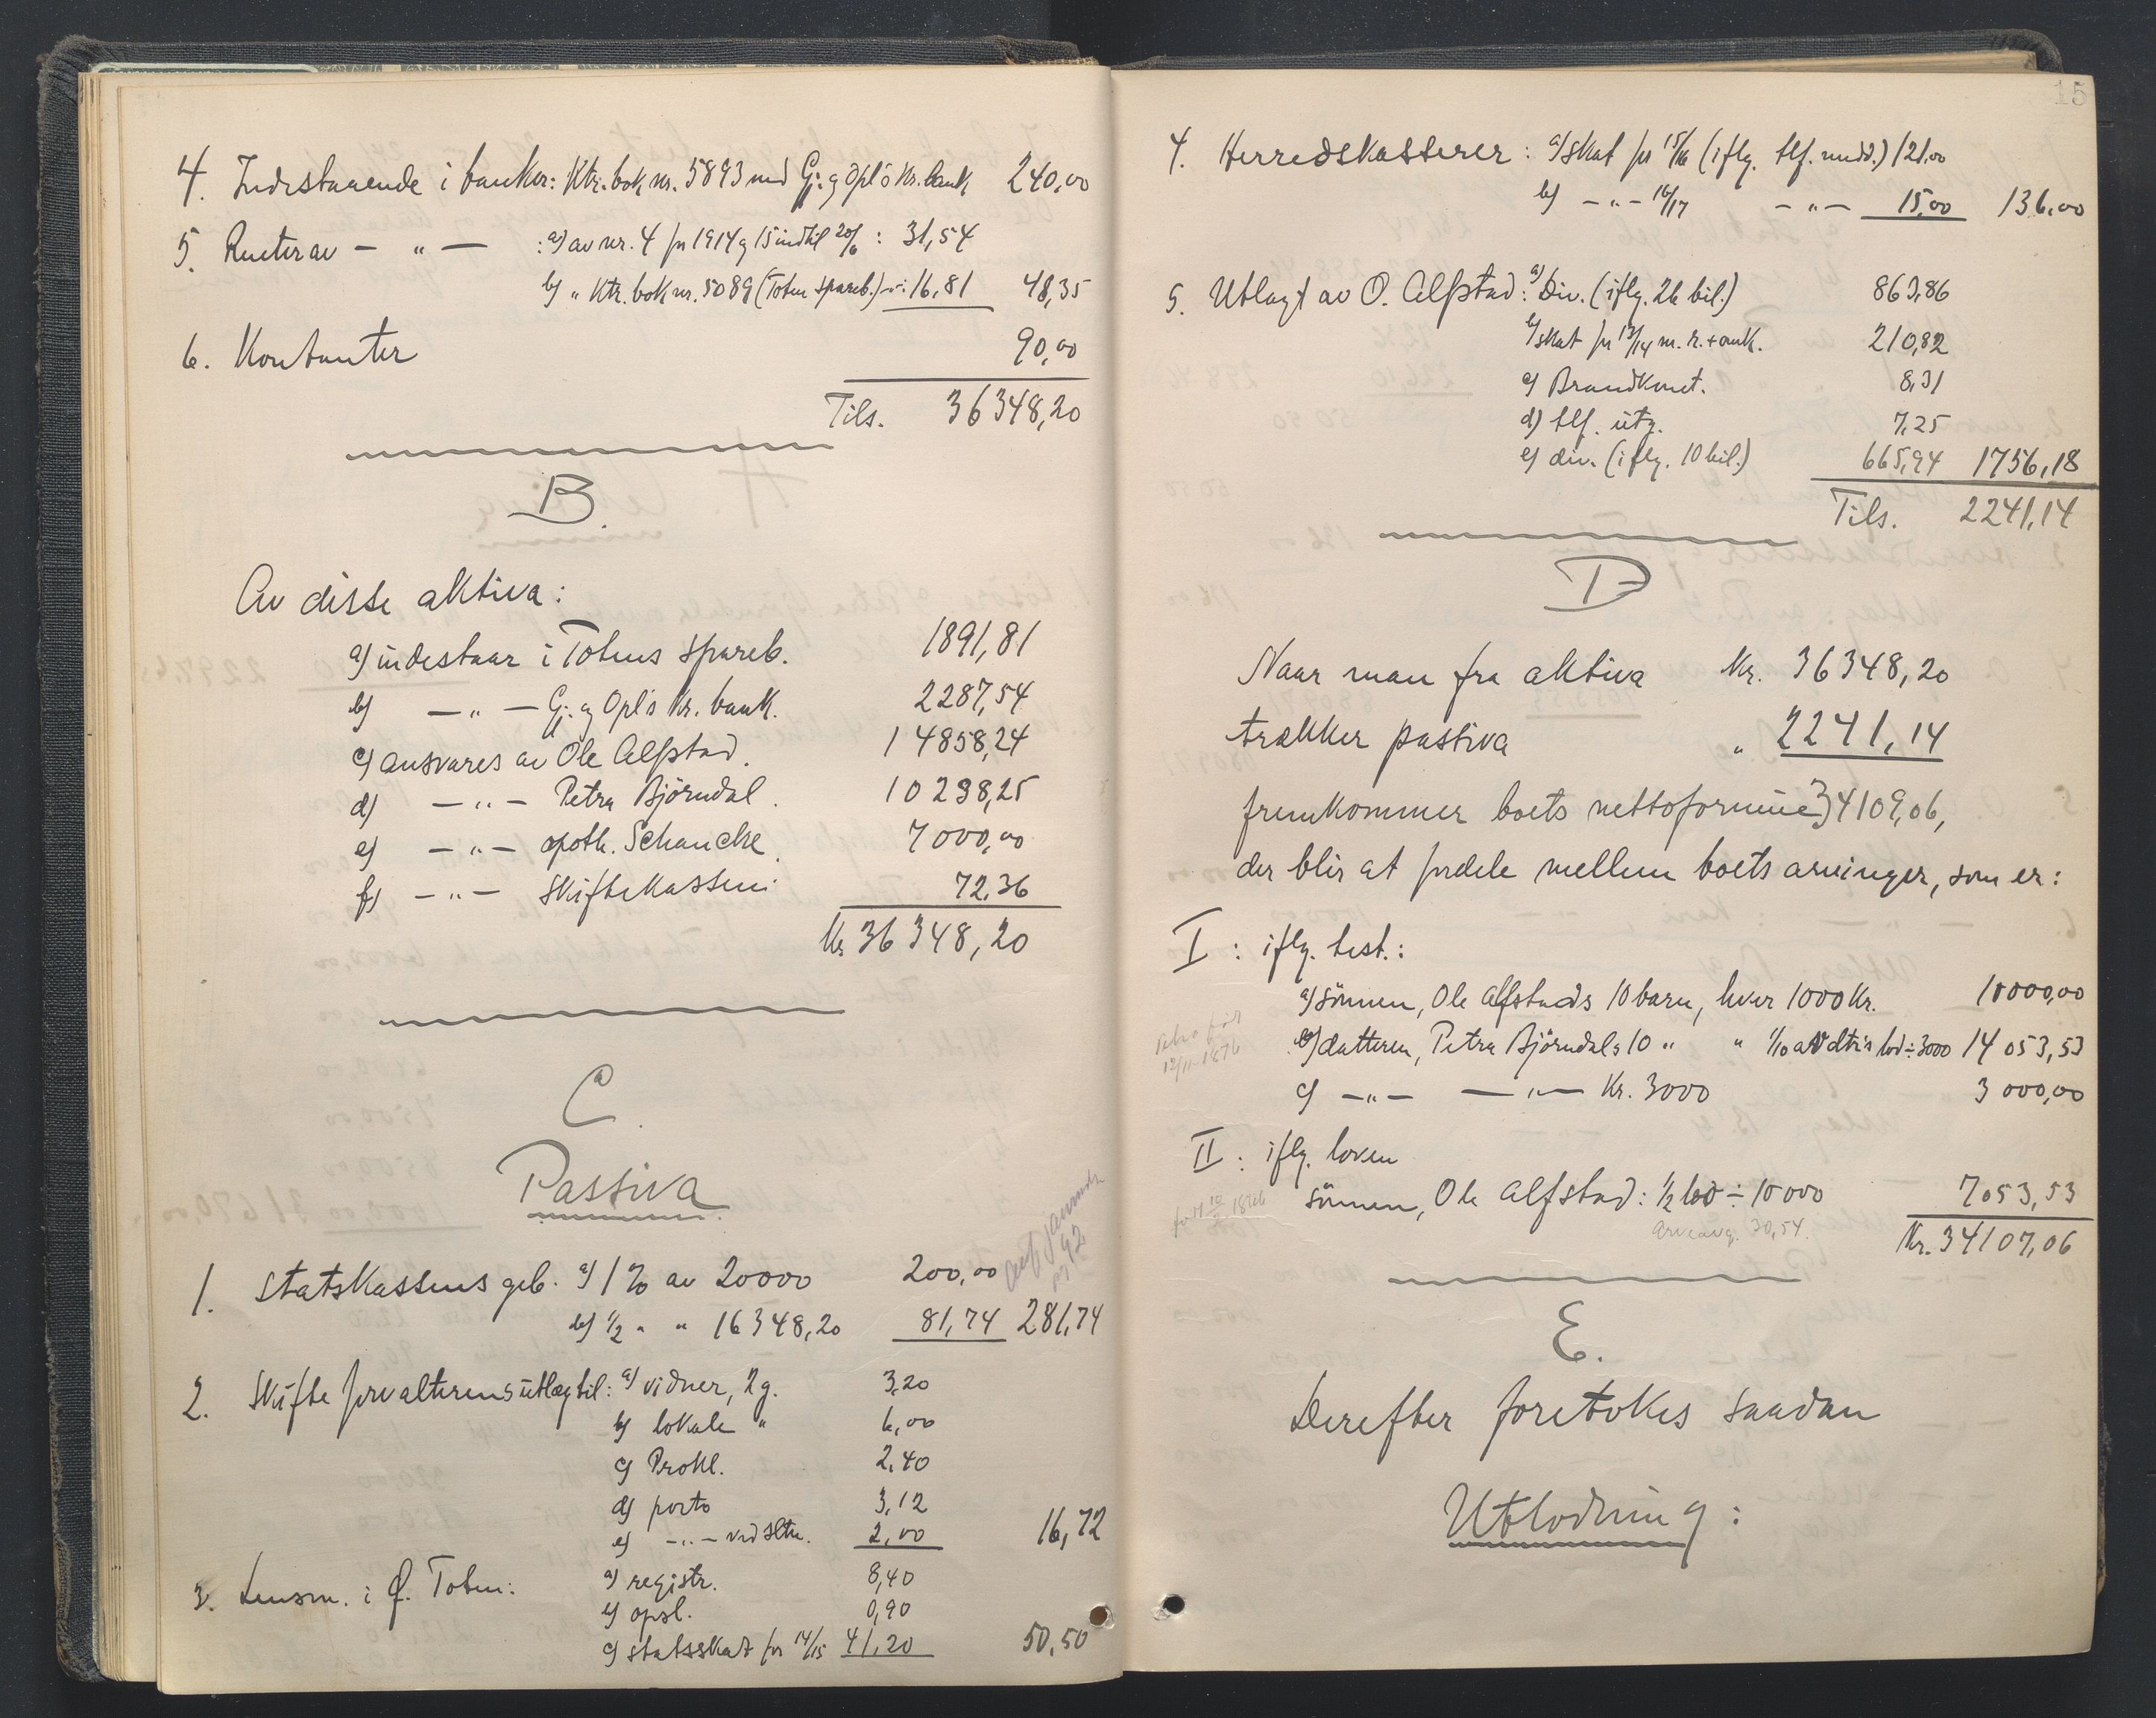 4. Indestaaende i banker: Ktr. bok nr. 5893 med Gj. og Opl's Kr. bank 240,00
5. Renter av — " — : a) av nr. 4 for 1914 og 15 indtil 20/6 : 31,54
b) " Ktr. bok nr. 5089 (Toten spareb.) -"-: 16,81 48,35
6. Kontanter 90,00
Tils. 36348,20
B.
Av disse aktiva:
a) indestaar i Totens spareb. 1891,81
b) — " — Gj. og Opl's Kr. bank. 2287,54
c) ansvares av Ole Alfstad. 14858,24
d) — " — Petra Björndal. 10238,25
e) — " — apoth. Schancke. 7000,00
f) — " — Skiftekassen: 72,36
Kr 36348,20
C.
Passiva
1. Statskassens geb. a) 1 % av 20000 200,00
b) 1/2 " " 16348,20 81,74 281,74
2. Skifteforvalterens utlæg til: a) vidner, 2 g. 3,20
b) lokale " 6,00
c) Prokl. 2,40
d) porto 3,12
e) — " — ved sltn. 2,00 16,72
3. Lensm. i Ø. Toten: a) registr. 8,40
b) opsl. 0,90
c) statsskat for 14/15 41,20 50,50
15
4. Herredskasserer: a) skat for 15/16 (iflg. tlf. medd.) 121,00
b) — " — 16/17 — " — 15,00 136,00
5. Utlagt av O. Alfstad: a) Div. (iflg. 26 bil.) 863,86
b) skat for 13/14 m. r. + omk. 210,82
c) Brandkont. 8,31
d) tlf. utg. 7,25
e) div. (iflg. 10 bil.) 665,94 1756,18
Tils. 2241,14
D
Naar man fra aktiva Kr. 36348,20
trækker passiva " 2241,14
fremkommer boets nettoformue 34109,06,
der blir at fordele mellem boets arvinger, som er:
I : iflg. test.:
a) sönnen, Ole Alfstads 10 barn, hver 1000 Kr. 10000,00
Petra född
12/11 1876
b) datteren, Petra Björndals 10 " " 1/10 av dtr's lod ÷ 3000 14 053,53
c) — " — — " — Kr. 3000 3 000,00
II : iflg. loven
sönnen, Ole Alfstad: 1/2 lod ÷ 10000 7053,53
Arveavg. 70,54.
Kr. 34107,06
E.
Derefter foretokes saadan
Utlodning: